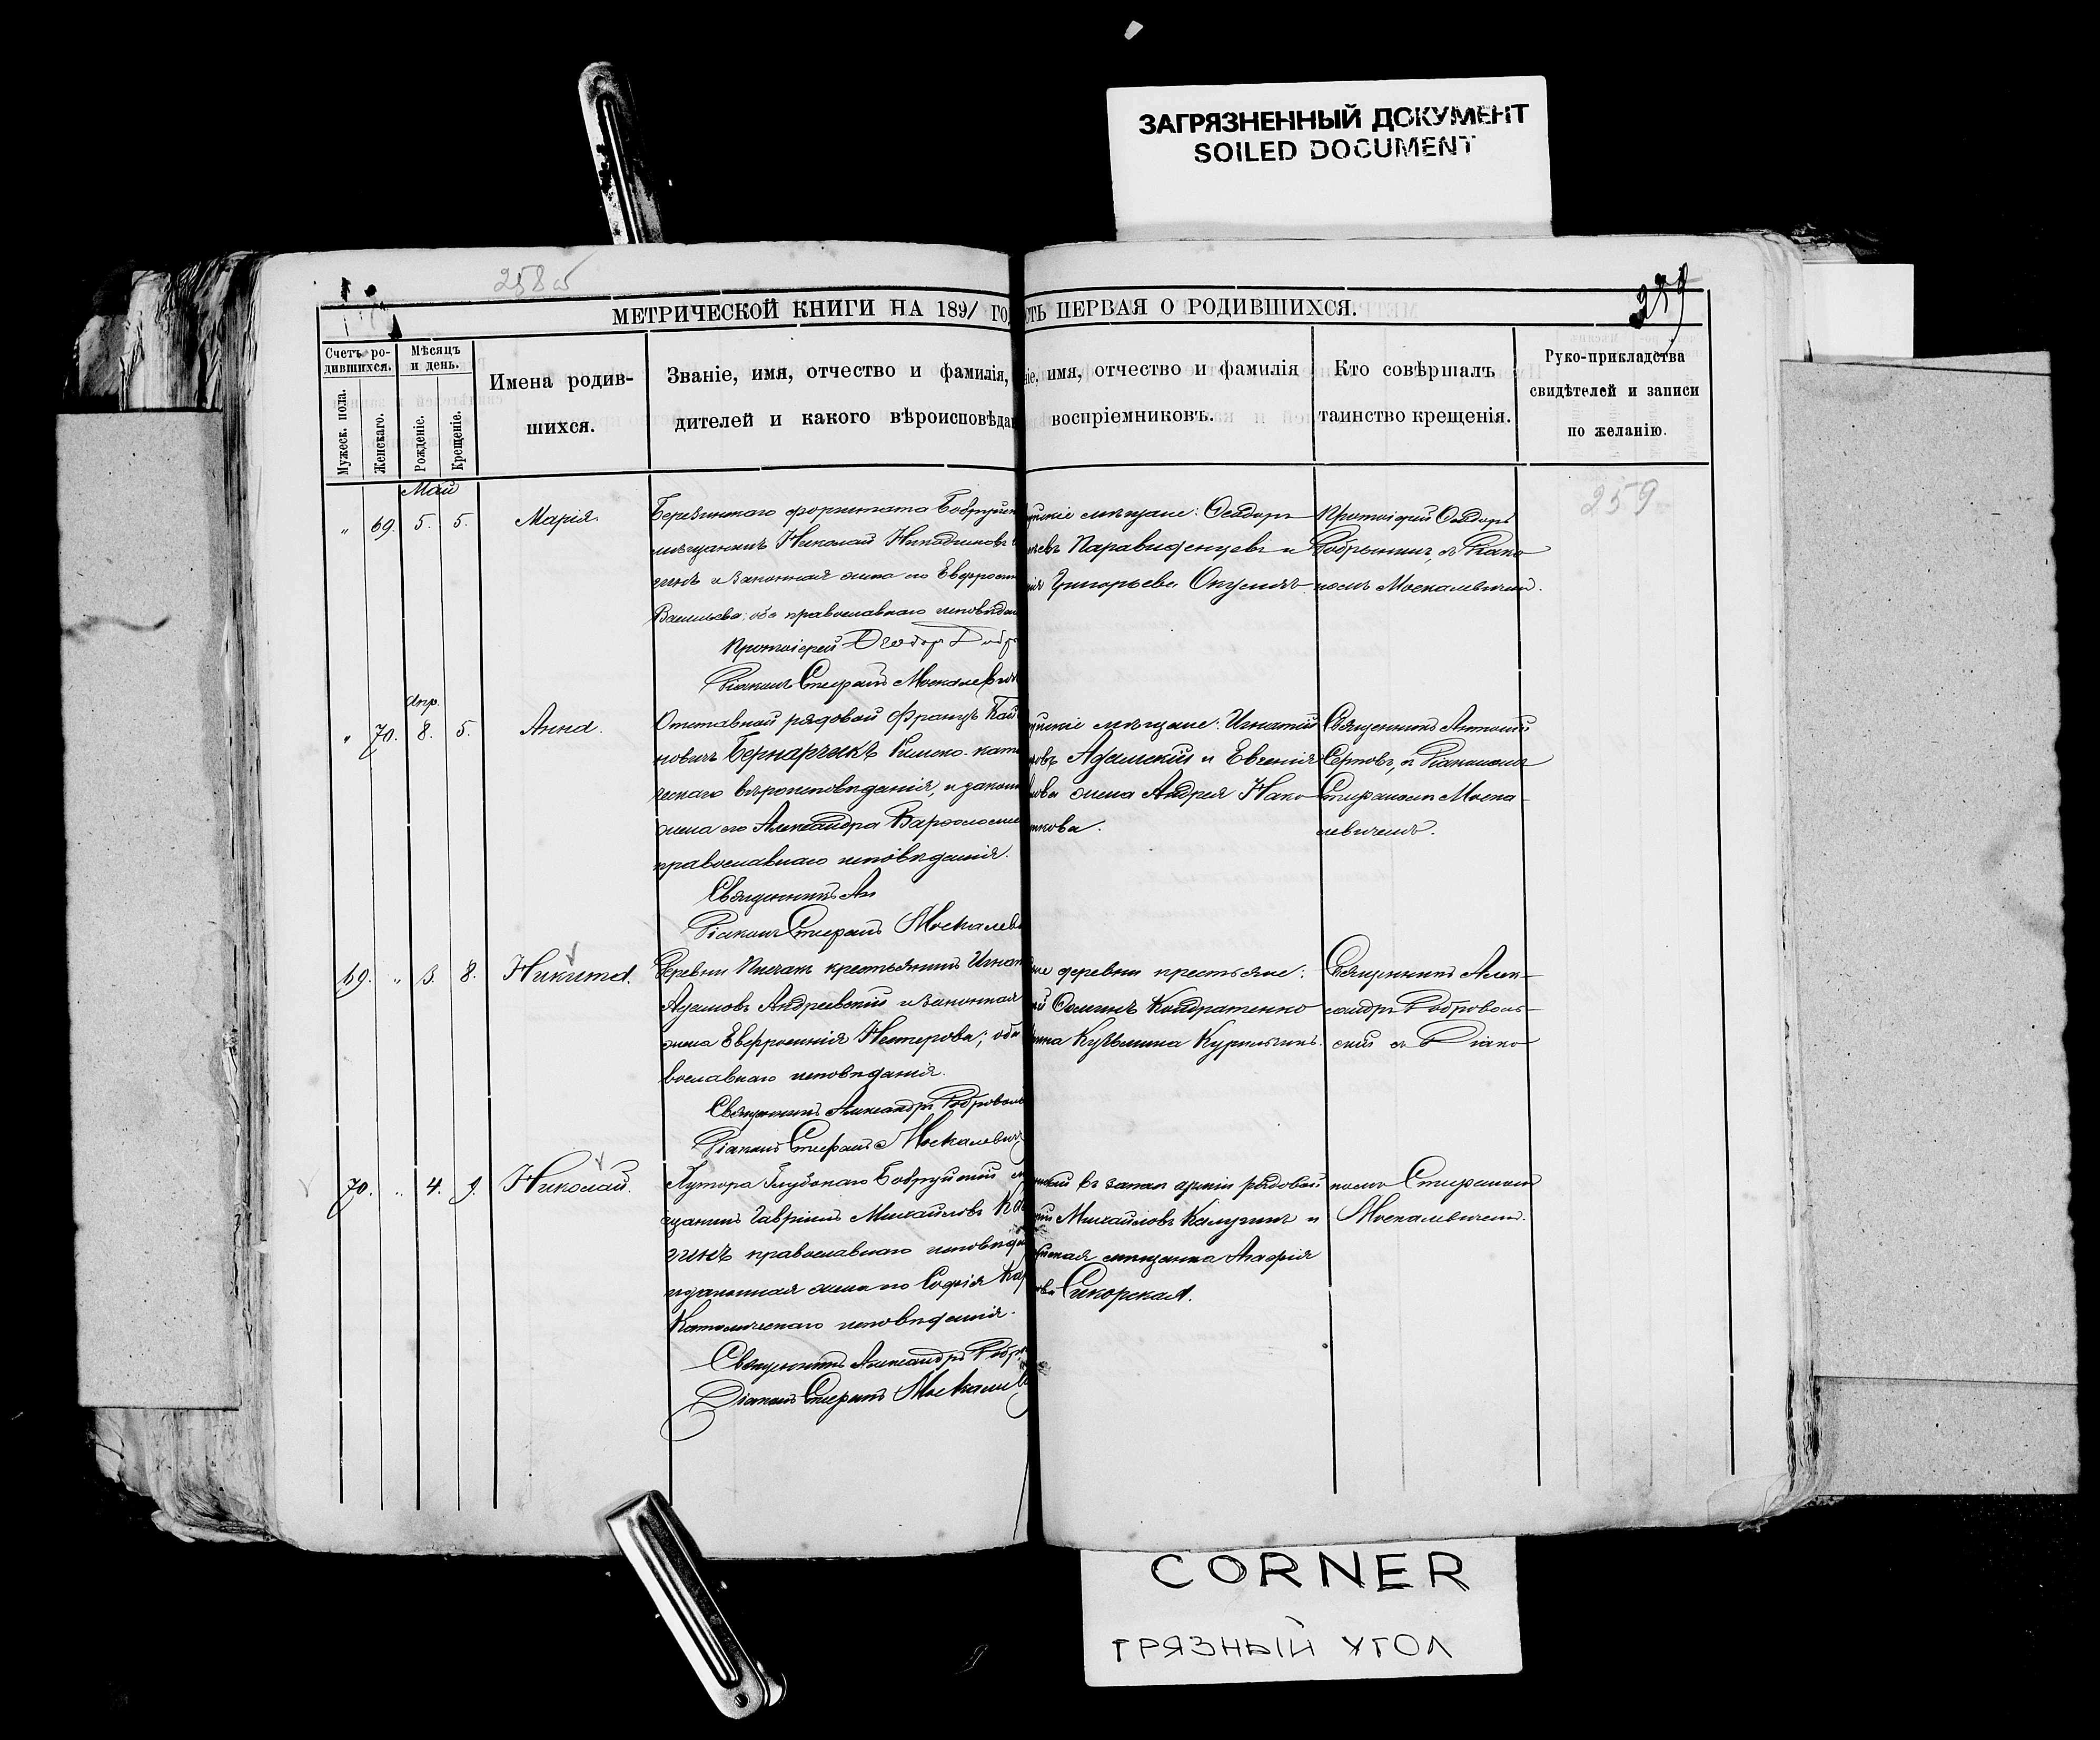 ЗАГРЯЗНЕННЫЙ ДОКУМЕНТ
SOILED DOCUMENT
258 об
259
МЕТРИЧЕСКОЙ КНИГИ НА 1891 ГО
СТЬ ПЕРВАЯ О РОДИВШИХСЯ.
Счетъ ро-
дившихся.
Мужеск. пола.
Женскаго.
Мѣсяцъ
и день.
Рожденіе.
Крещеніе.
Имена родив-
шихся.
Званіе, имя, отчество и фамилія,
дителей и какого вѣроисповѣдан
ніе, имя, отчество и фамилія
воспріемниковъ.
Кто совѣршалъ
таинство крещенія.
Руко-прикладства
свидѣтелей и записи
по желанію.
259
Май
" 69. 5. 5. Марія.
Березинскаго форштата Бобруйск
мѣщанинъ Николай Никодимовъ
и законная жена его Евфросин
Васильева; оба православнаго исповѣдан
Протоіерей Ѳеодоръ Добр
Діаконъ Стефанъ Москалевич
уйскіе мѣщане: Ѳеодоръ
Григорьева
Протоіерей Ѳеодоръ
Добрынинъ, съ Діако
номъ Москалевичемъ.
Апр.
" 70. 8. 5. Анна.
Отставной рядовой Францъ
новичъ Бернарчикъ Римско-като
ческаго вѣроисповѣданія, и законн
жена его Александра Варѳоломе
православнаго исповѣданія.
Священникъ Ан
Діаконъ Стефанъ Москалев
уйскіе мѣщане: Игнатій
Адамскій и Евгенія
нова жена Андрея Нако
икова.
Священникъ Антоній
Сержовъ, съ Діакономъ
Стефаномъ Моска-
левичемъ.
69. " 3. 8. Никита.
Деревни крестьянинъ Игнат
Адамовъ Андреевскій и законная
жена Евфросинія Нестерова; оба
вославнаго исповѣданія.
Священникъ Александръ Добровол
Діаконъ Стефанъ Москалевич
же деревни крестьяне:
Кондратенко
Кузьмина
Священникъ Алек-
сандръ Доброволь-
скій съ Діако
70. " 4. 9. Николай.
Хутора Глубокаго Бобруйскій мѣ
щанинъ Гавріилъ Михайловъ Ка
гинъ православнаго исповѣда
и законная жена его Софія Кар
Католическаго исповѣданія.
Священникъ Александръ Добр
Діаконъ Стефанъ Москалев
въ запасъ арміи рядовой
Михайловъ Калугинъ и
йская мѣщанка Агафія
ова Сикорская.
номъ Стефаномъ
Москалевичемъ.
CORNER
ГРЯЗНЫЙ УГОЛ